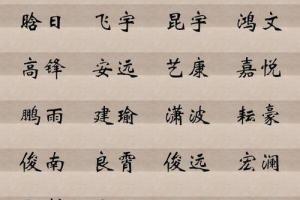 晗日 飞宇 昆宇 鸿文
高锋 安远 艺康 嘉悦
鹏雨 建瑜 潇波 耘豪
俊南 良霄 俊远 宏澜